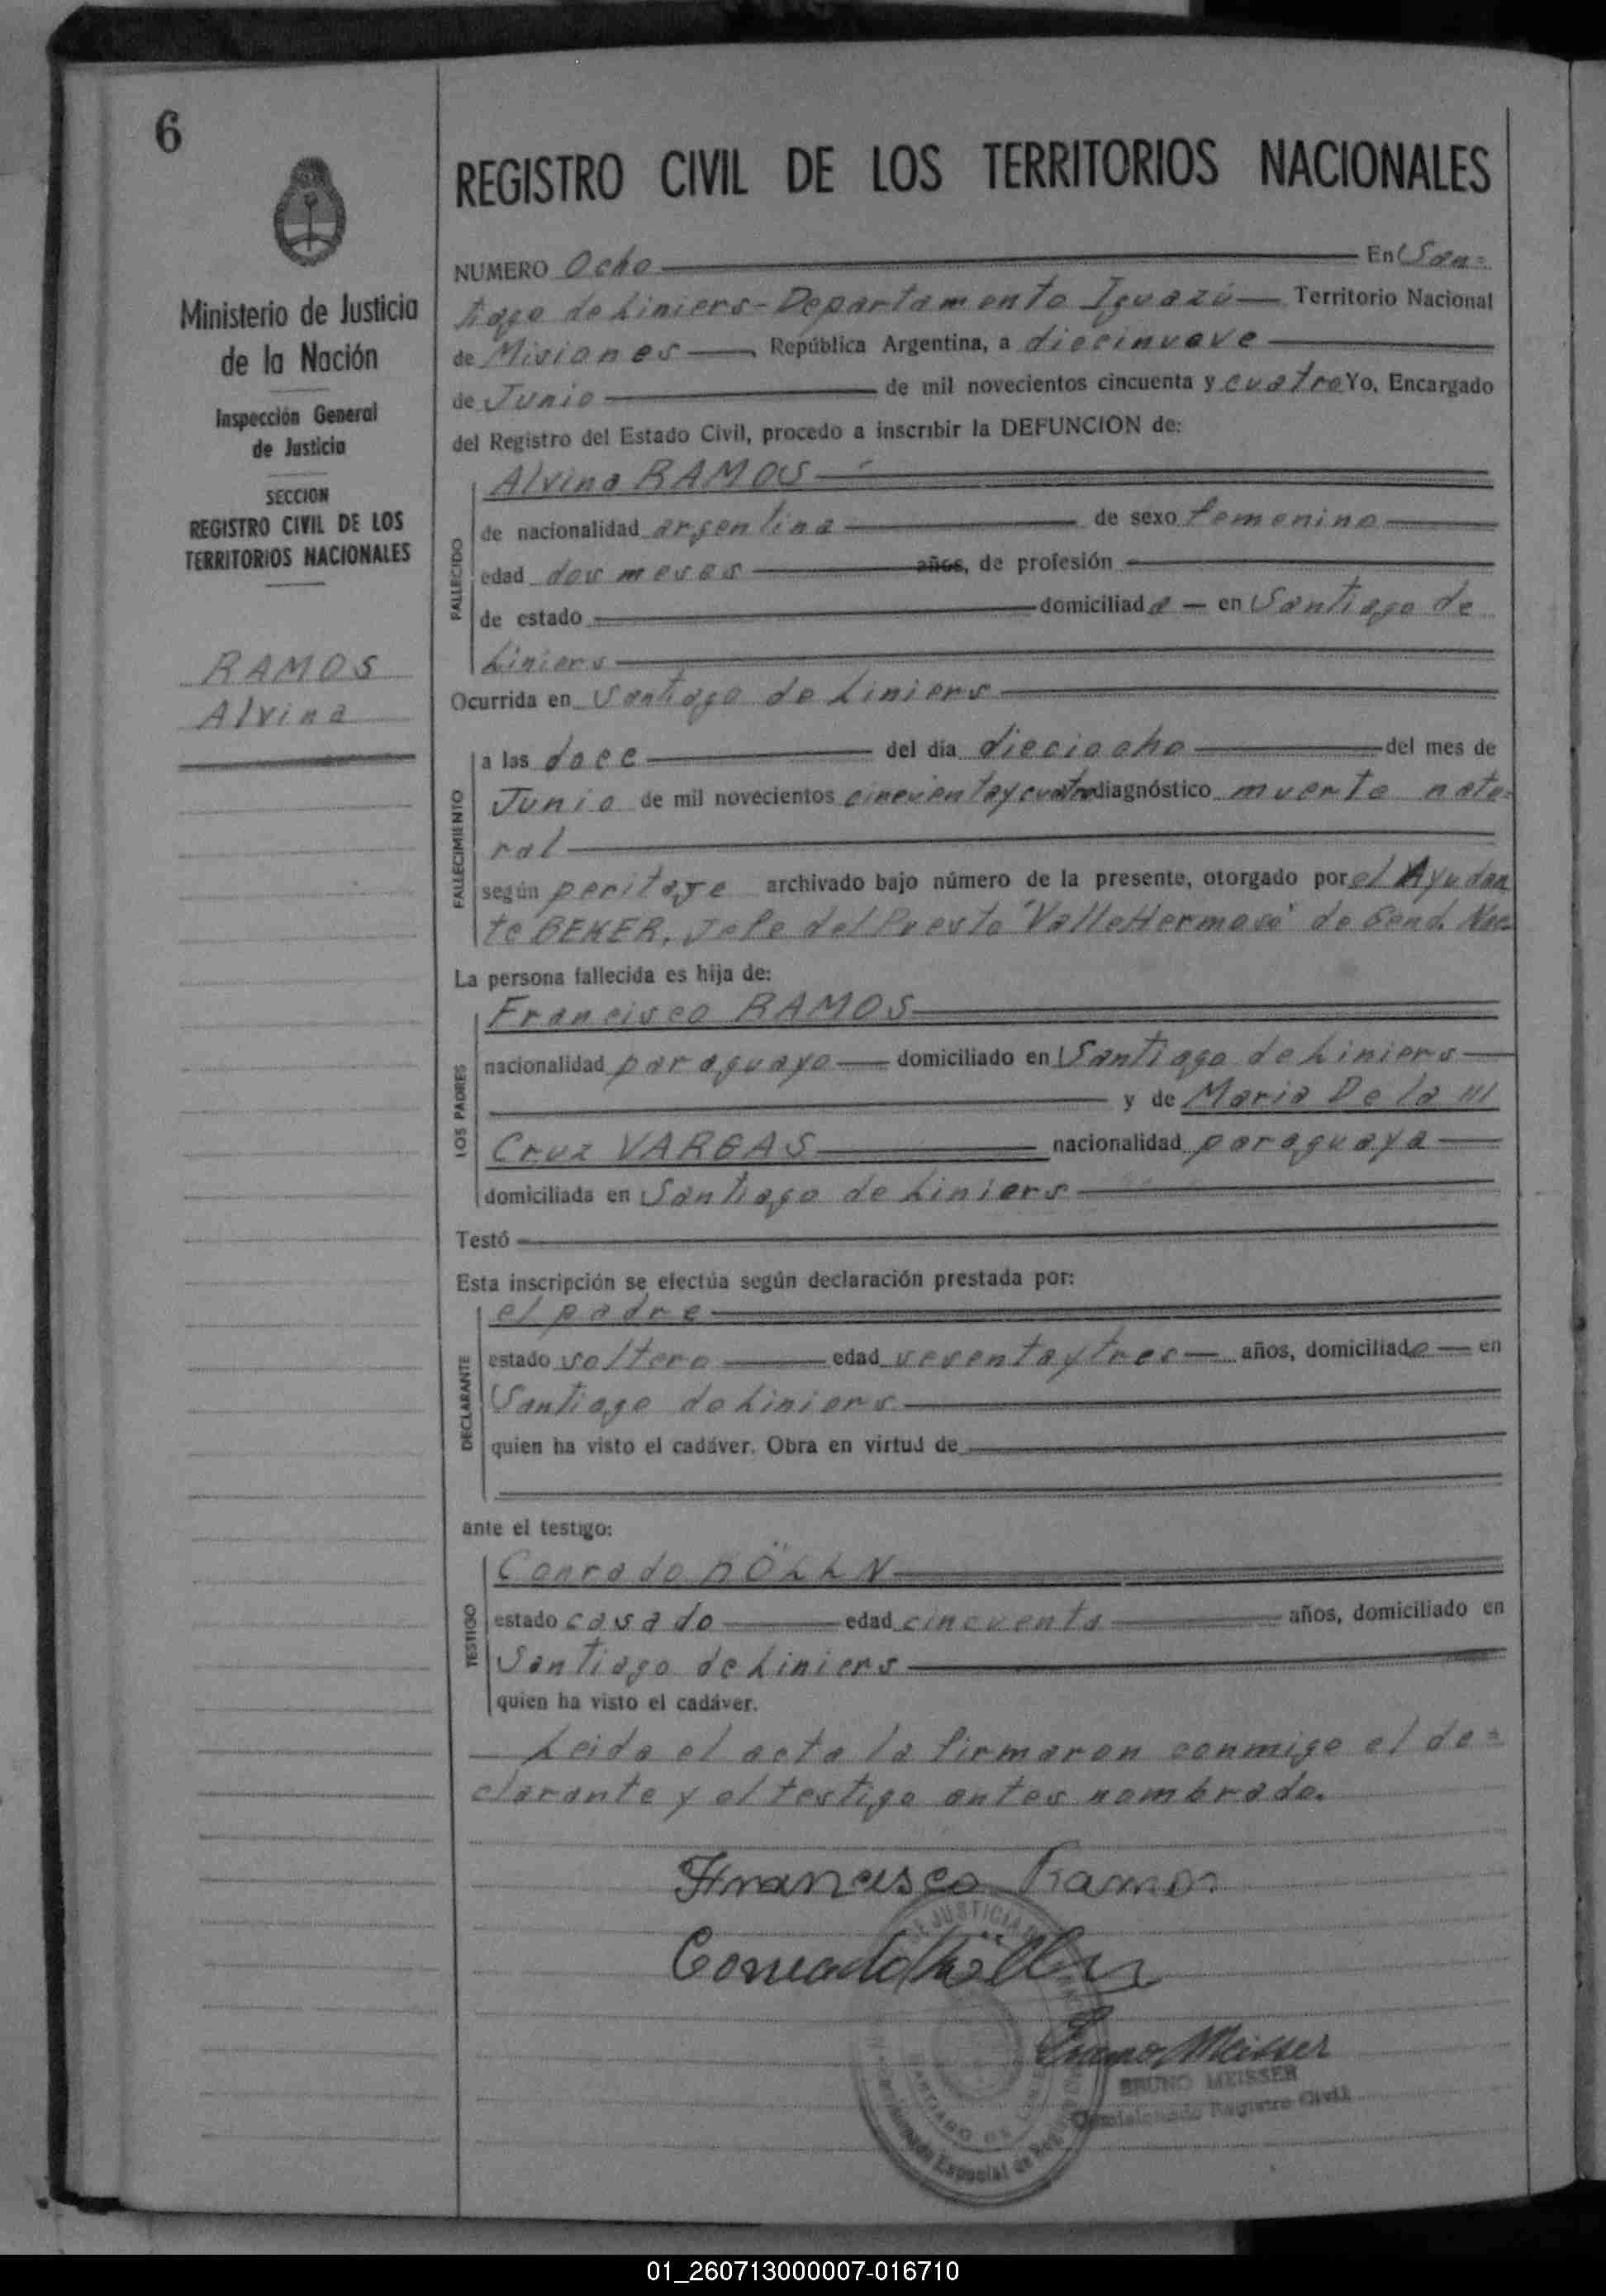 6
REGISTRO CIVIL DE LOS TERRITORIOS NACIONALES
Ministerio de Justicia
de la Nación
Inspección General
de Justicia
SECCION
REGISTRO CIVIL DE LOS
TERRITORIOS NACIONALES
RAMOS
Alvina
NUMERO Ocho En San=
tiago de Liniers - Departamento Iguazú Territorio Nacional
de Misiones, República Argentina, a diecinueve
de Junio de mil novecientos cincuenta y cuatro Yo, Encargado
del Registro del Estado Civil, procedo a inscribir la DEFUNCION de:
FALLECIDO
Alvina RAMOS
de nacionalidad argentina de sexo femenino
edad dos meses años, de profesión
de estado domiciliada en Santiago de
Liniers
Ocurrida en Santiago de Liniers
FALLECIMIENTO
a las doce del día dieciocho del mes de
Junio de mil novecientos cincuenta y cuatro diagnóstico muerte natu=
ral
según peritage archivado bajo número de la presente, otorgado por el Ayudan
te BEKER, Jefe del Puesto "Valle Hermoso" de Gend. Nac=
La persona fallecida es hija de:
LOS PADRES
Francisco RAMOS
nacionalidad paraguayo domiciliado en Santiago de Liniers
y de Maria De la ///
Cruz VARGAS nacionalidad paraguaya
domiciliada en Santiago de Liniers
Testó
Esta inscripción se efectúa según declaración prestada por:
DECLARANTE
el padre
estado soltero edad sesenta y tres años, domiciliado en
Santiago de Liniers
quien ha visto el cadáver. Obra en virtud de
ante el testigo:
TESTIGO
Conrado KÖLLN
estado casado edad cincuenta años, domiciliado en
Santiago de Liniers
quien ha visto el cadáver.
Leida el acta la firmaron conmigo el de=
clarante y el testigo antes nombrado.
Francisco Ramos
Conrado Kölln
Bruno Meisser
BRUNO MEISSER
Registro Civil
01_260713000007-016710